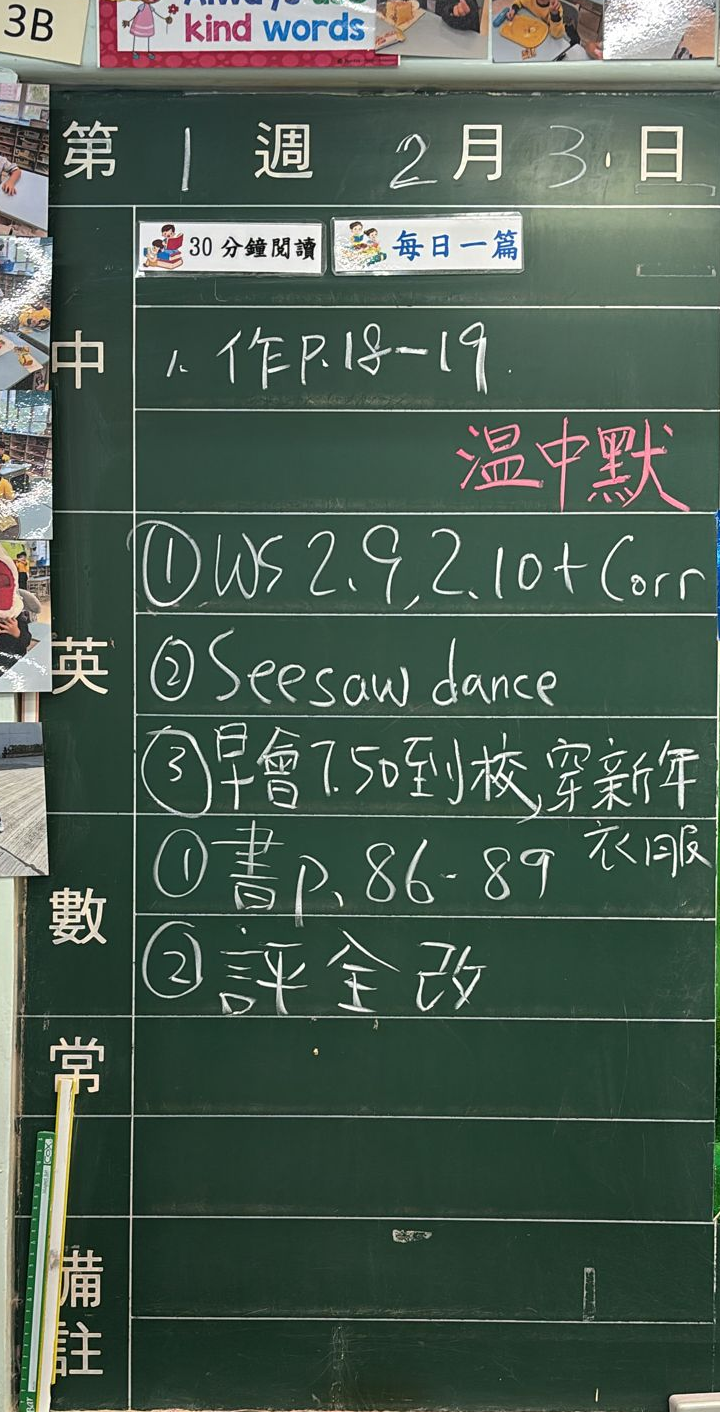 3B
kind words
第 1 週 2 月 3 日
30分鐘閱讀 每日一篇
中
1. 作P.18-19
温中默
英
① WS 2.9, 2.10 + Corr
② Seesaw dance
③ 早會7.50到校,穿新年
衣服
數
① 書p. 86-89
② 評全改
常
備註